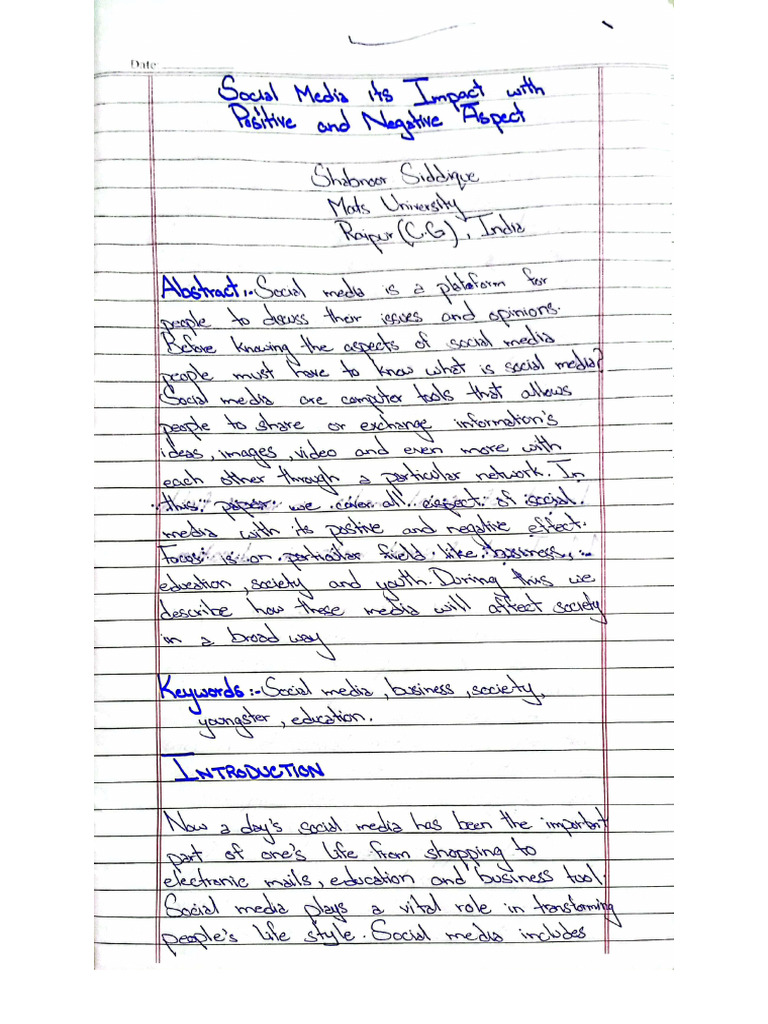 Date
Social Media its Impact with
Positive and Negative Aspect
Shabnoor Siddique
Mats University
Raipur (C.G), India
Abstract:- Social media is a plateform for
people to discuss their issues and opinions.
Before knowing the aspects of social media
people must have to know what is social media?
Social media are computer tools that allows
people to share or exchange information's
ideas, images, video and even more with
each other through a particular network. In
this paper we cover all aspect of social
media with its postive and negative effect.
Focus is on particular field like business,
education, society and youth. During this we
describe how these media will affect society
in a broad way
Keywords:- Social media, business, society,
youngster, education.
INTRODUCTION
Now a day's social media has been the important
part of one's life from shopping to
electronic mails, education and business tool.
Social media plays a vital role in transforming
people's life style. Social media includes